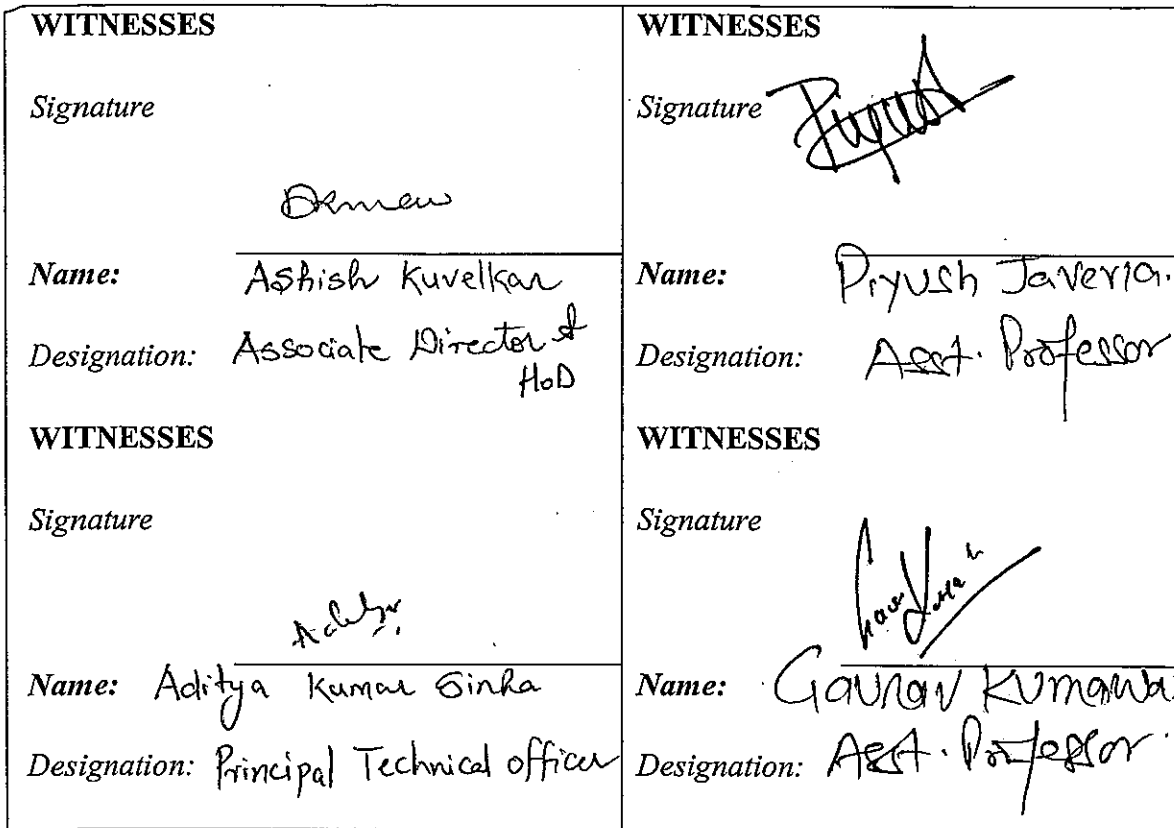 WITNESSES
Signature
Name: Ashish Kuvelkar
Designation: Associate Director &
HoD
WITNESSES
Signature
Name: Aditya Kumar Sinha
Designation: Principal Technical officer
WITNESSES
Signature
Name: Piyush Javeria.
Designation: Asst. Professor
WITNESSES
Signature
Name: Gaurav Kumawa
Designation: Asst. Professor